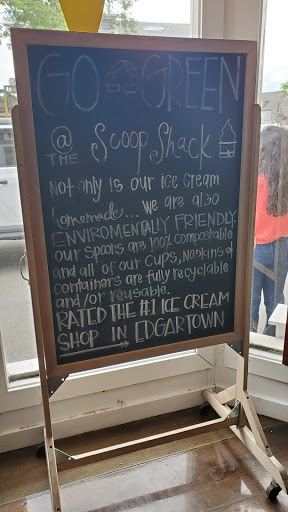 GO GREEN
@ THE Scoop Shack
Not only is our ice cream
homemade... we are also
ENVIROMENTALLY FRIENDLY.
our spoons are 100% compostable
and all of our cups, Napkins &
containers are fully recyclable
and/or reusable.
RATED THE #1 ICE CREAM
SHOP IN EDGARTOWN